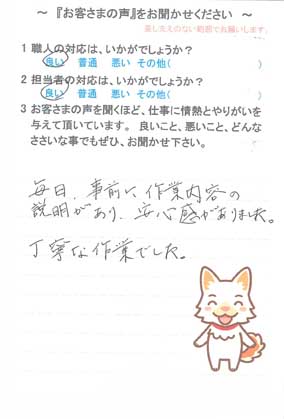 ～『お客さまの声』をお聞かせください～
差し支えのない範囲でお願いします。
1 職人の対応は、いかがでしょうか？
良い 普通 悪い その他( )
2 担当者の対応は、いかがでしょうか？
良い 普通 悪い その他( )
3 お客さまの声を聞くほど、仕事に情熱とやりがいを
与えて頂いています。 良いこと、悪いこと、どんな
ささいな事でもぜひ、お聞かせ下さい。
毎日、事前に作業内容の
説明があり、安心感がありました。
丁寧な作業でした。